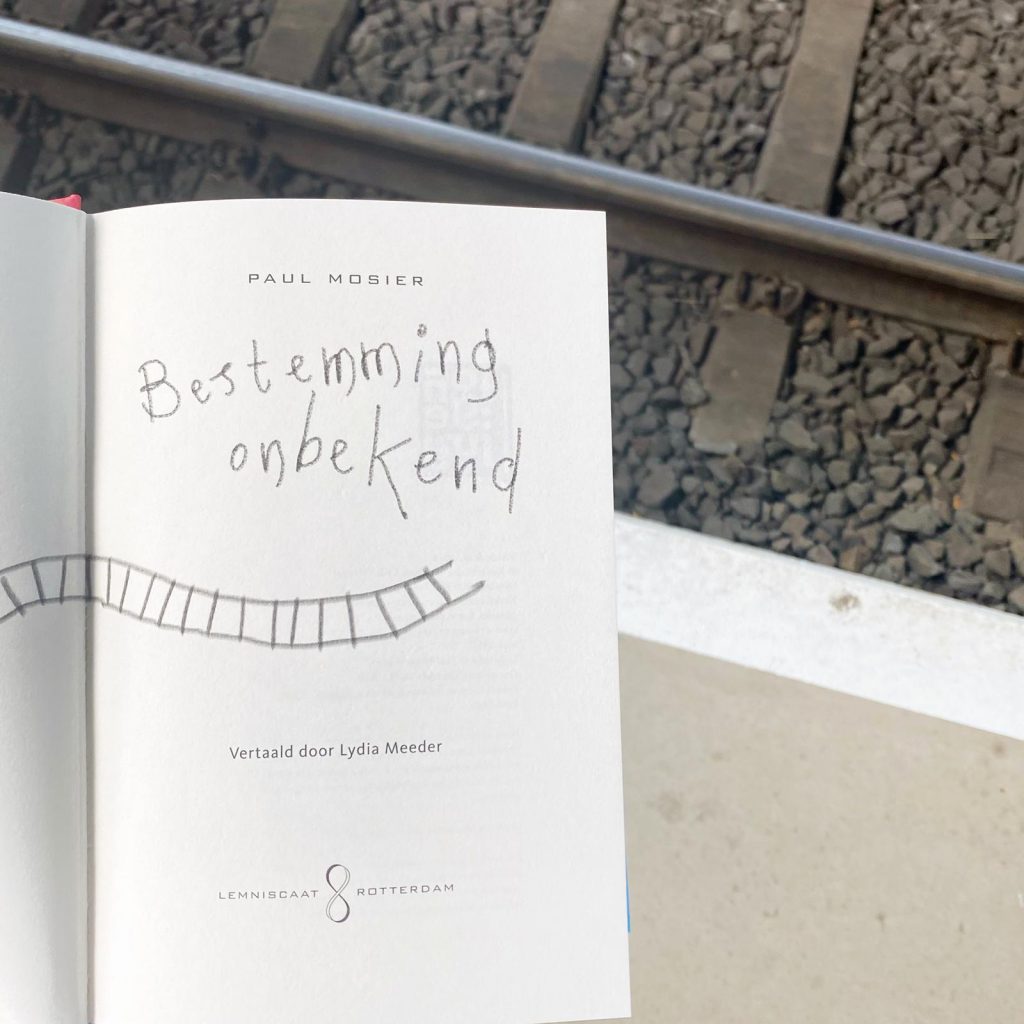 PAUL MOSIER
Bestemming
onbekend
Vertaald door Lydia Meeder
LEMNISCAAT ROTTERDAM